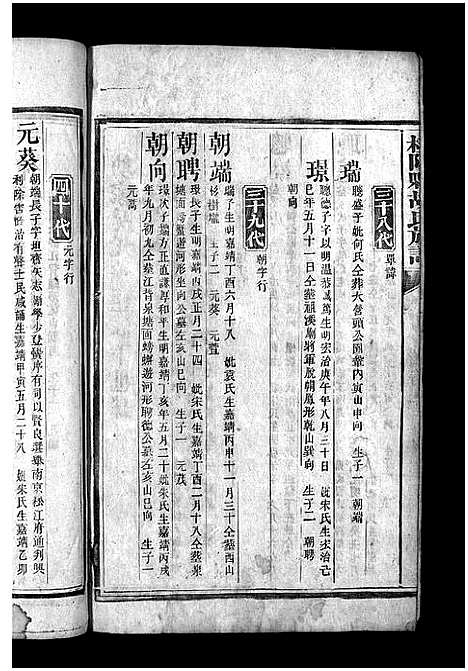 三十八代 單諱
瑞
聰盛子妣何氏仝葬大營頭公園叢內寅山申向 生子一 朝端
璟
聰德子字以明溫恭篤生明宏治庚午年八月三十日 妣宋氏生宏治己
巳年五月十一日仝葬頑溪廟將軍脫朝鳳形乾山巽向 生子二 朝聘
朝向
三十九代 朝字行
朝端
瑞子生明嘉靖丁酉六月十八 妣袁氏生嘉靖丙申十一月三十仝葬西山
樹壠 生子二 元葵 元萱
朝聘
璟長子生明嘉靖丙戌正月二十四 妣宋氏生嘉靖丁酉二月十八仝葬泉
遊河形坐向公墓左亥山巳向 生子一 元茂
朝向
璟次子端方正直謙厚和平生明嘉靖丁亥年五月二十妣朱氏生嘉靖丙戌
年九月初九仝葬江背泉塘面螃蟹遊河形聰德公墓左亥山巳向 生子一
元萬
四十代 元字行
元葵
朝端長子字坦齋矢志勵學少登黌序有司以賢良選舉南京松江府通判興
利除害治有聲士民咸誦生嘉靖甲寅五月二十八 妣朱氏生嘉靖乙卯